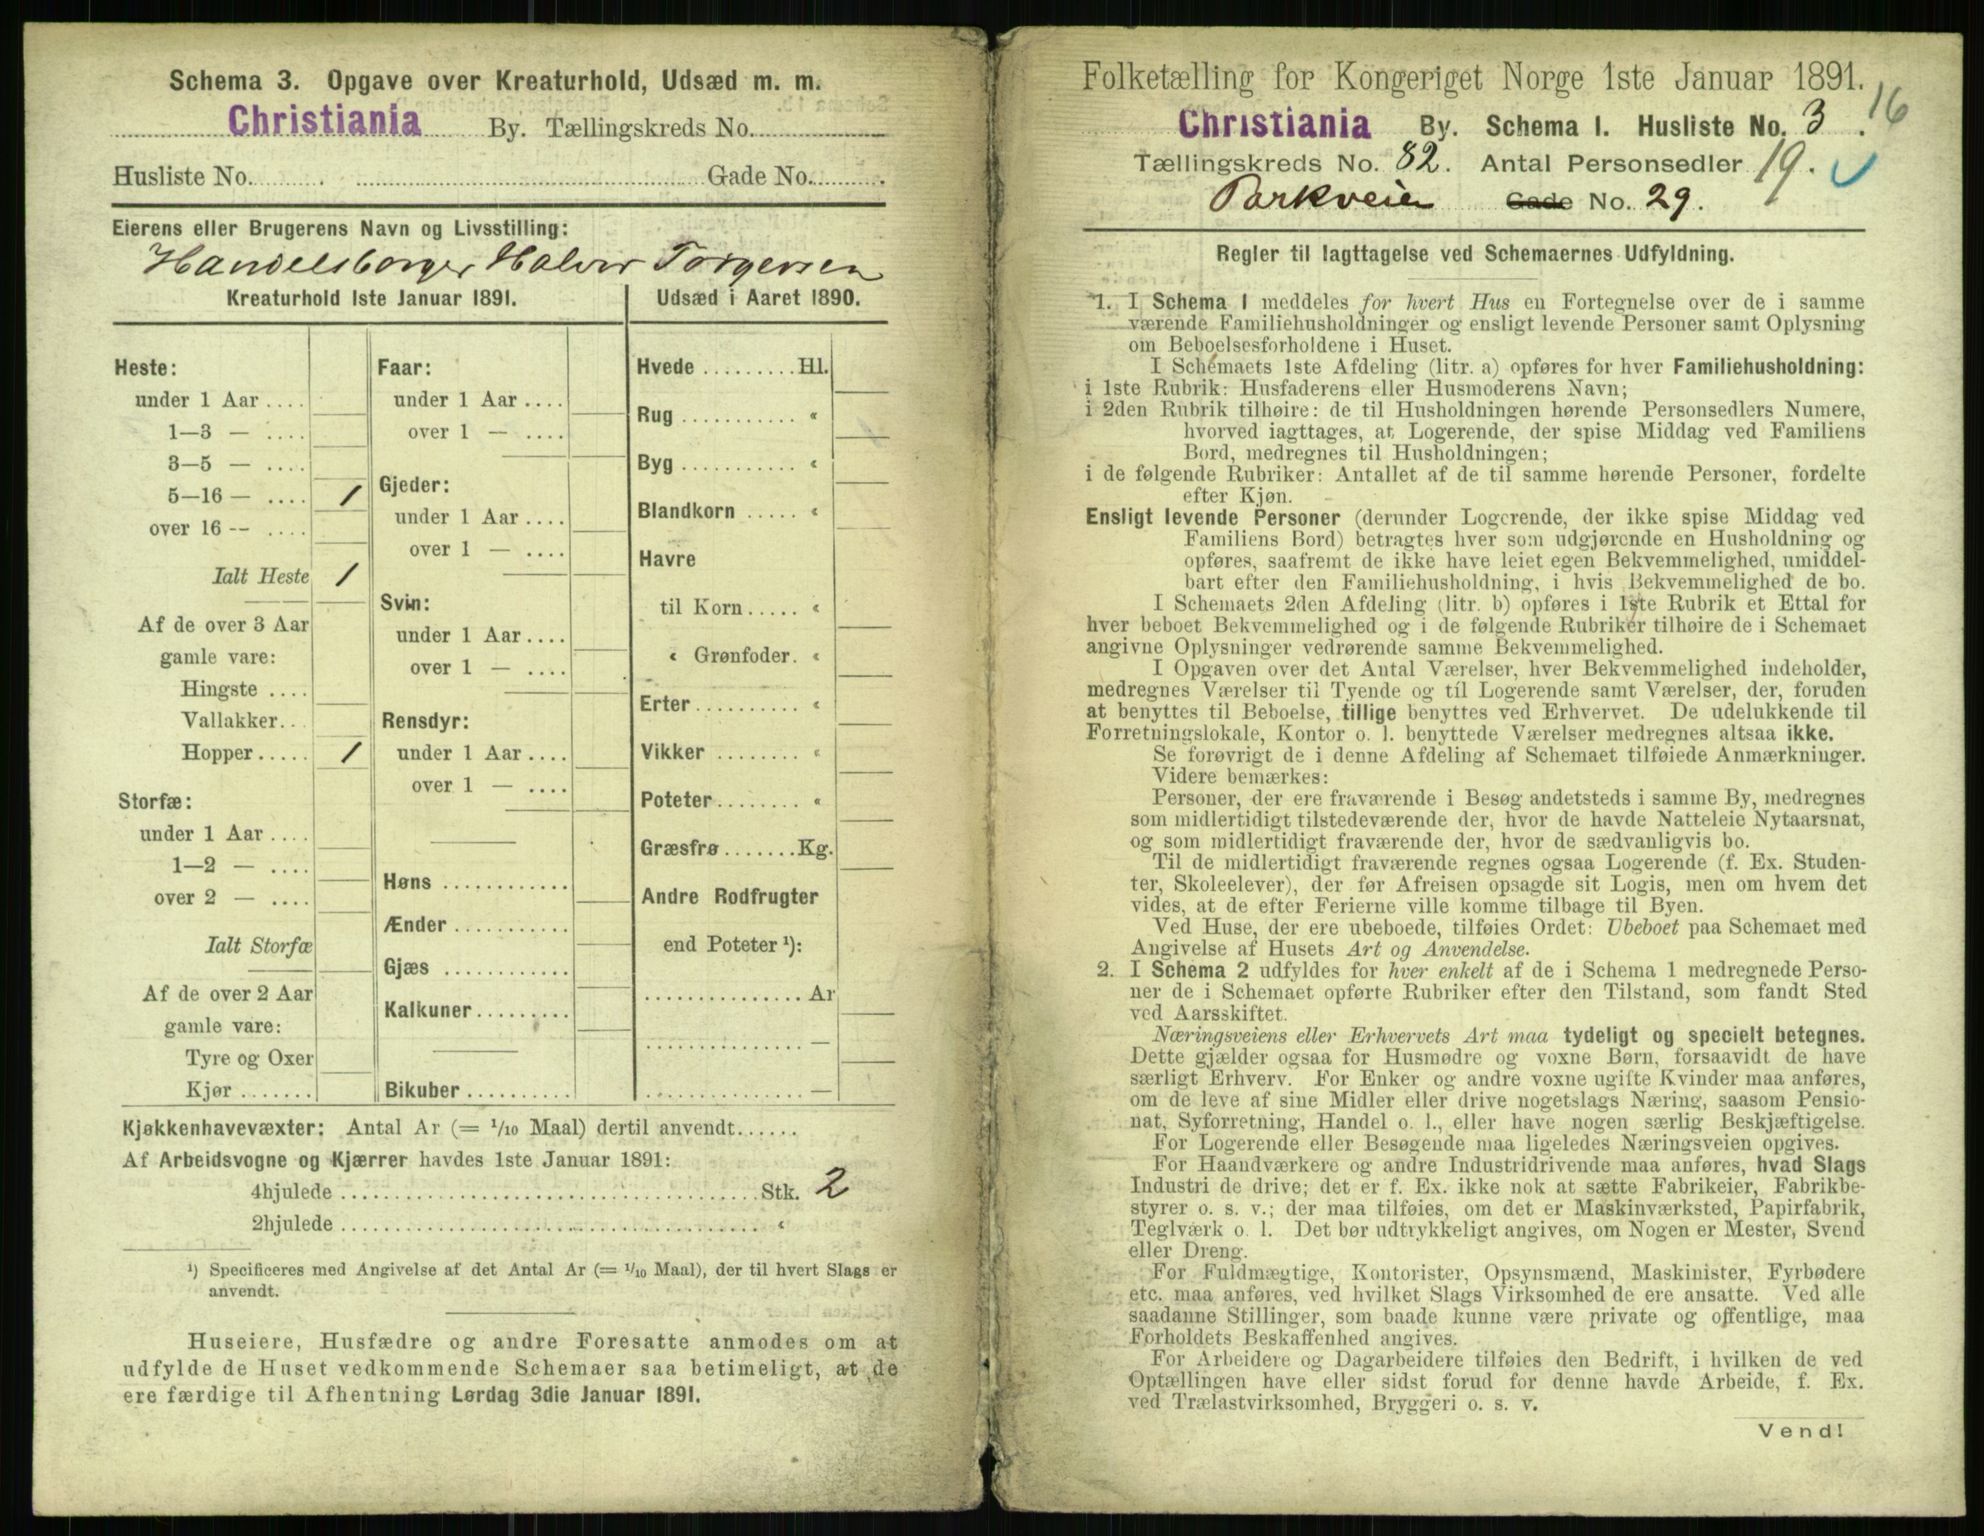 Schema 3. Opgave over Kreaturhold, Udsæd m. m.
Christiania By. Tællingskreds No.
Husliste No. Gade No.
Eierens eller Brugerens Navn og Livsstilling:
Handelsborger Halvor Torgersen
Kreaturhold 1ste Januar 1891.
Udsæd i Aaret 1890.
Heste:
under 1 Aar
1—3 —
3—5 —
5—16 — 1
over 16 --
Ialt Heste 1
Af de over 3 Aar
gamle vare:
Hingste
Vallakker
Hopper 1
Storfæ:
under 1 Aar
1—2 —
over 2 —
Ialt Storfæ
Af de over 2 Aar
gamle vare:
Tyre og Oxer
Kjør
Faar:
under 1 Aar
over 1 —
Gjeder:
under 1 Aar
over 1 —
Svin:
under 1 Aar
over 1 —
Rensdyr:
under 1 Aar
over 1 —
Høns
Ænder
Gjæs
Kalkuner
Bikuber
Hvede Hl.
Rug «
Byg «
Blandkorn «
Havre
til Korn «
« Grønfoder. «
Erter «
Vikker «
Poteter «
Græsfrø Kg.
Andre Rodfrugter
end Poteter ¹):
Ar
—
—
Kjøkkenhavevæxter: Antal Ar (= 1/10 Maal) dertil anvendt
Af Arbeidsvogne og Kjærrer havdes 1ste Januar 1891:
4hjulede Stk. 2
2hjulede «
¹) Specificeres med Angivelse af det Antal Ar (= 1/10 Maal), der til hvert Slags er
anvendt.
Huseiere, Husfædre og andre Foresatte anmodes om at
udfylde de Huset vedkommende Schemaer saa betimeligt, at de
ere færdige til Afhentning Lørdag 3die Januar 1891.
Folketælling for Kongeriget Norge 1ste Januar 1891.
16
Christiania By. Schema 1. Husliste No. 3.
Tællingskreds No. 82. Antal Personsedler 19.
Parkveien Gade No. 29.
Regler til Iagttagelse ved Schemaernes Udfyldning.
1. I Schema 1 meddeles for hvert Hus en Fortegnelse over de i samme
værende Familiehusholdninger og ensligt levende Personer samt Oplysning
om Beboelsesforholdene i Huset.
I Schemaets 1ste Afdeling (litr. a) opføres for hver Familiehusholdning:
i 1ste Rubrik: Husfaderens eller Husmoderens Navn;
i 2den Rubrik tilhøire: de til Husholdningen hørende Personsedlers Numere,
hvorved iagttages, at Logerende, der spise Middag ved Familiens
Bord, medregnes til Husholdningen;
i de følgende Rubriker: Antallet af de til samme hørende Personer, fordelte
efter Kjøn.
Ensligt levende Personer (derunder Logerende, der ikke spise Middag ved
Familiens Bord) betragtes hver som udgjørende en Husholdning og
opføres, saafremt de ikke have leiet egen Bekvemmelighed, umiddel-
bart efter den Familiehusholdning, i hvis Bekvemmelighed de bo.
I Schemaets 2den Afdeling (litr. b) opføres i 1ste Rubrik et Ettal for
hver beboet Bekvemmelighed og i de følgende Rubriker tilhøire de i Schemaet
angivne Oplysninger vedrørende samme Bekvemmelighed.
I Opgaven over det Antal Værelser, hver Bekvemmelighed indeholder,
medregnes Værelser til Tyende og til Logerende samt Værelser, der, foruden
at benyttes til Beboelse, tillige benyttes ved Erhvervet. De udelukkende til
Forretningslokale, Kontor o. l. benyttede Værelser medregnes altsaa ikke.
Se forøvrigt de i denne Afdeling af Schemaet tilføiede Anmærkninger.
Videre bemærkes:
Personer, der ere fraværende i Besøg andetsteds i samme By, medregnes
som midlertidigt tilstedeværende der, hvor de havde Natteleie Nytaarsnat,
og som midlertidigt fraværende der, hvor de sædvanligvis bo.
Til de midlertidigt fraværende regnes ogsaa Logerende (f. Ex. Studen-
ter, Skoleelever), der før Afreisen opsagde sit Logis, men om hvem det
vides, at de efter Ferierne ville komme tilbage til Byen.
Ved Huse, der ere ubeboede, tilføies Ordet: Ubeboet paa Schemaet med
Angivelse af Husets Art og Anvendelse.
2. I Schema 2 udfyldes for hver enkelt af de i Schema 1 medregnede Perso-
ner de i Schemaet opførte Rubriker efter den Tilstand, som fandt Sted
ved Aarsskiftet.
Næringsveiens eller Erhvervets Art maa tydeligt og specielt betegnes.
Dette gjælder ogsaa for Husmødre og voxne Børn, forsaavidt de have
særligt Erhverv. For Enker og andre voxne ugifte Kvinder maa anføres,
om de leve af sine Midler eller drive nogetslags Næring, saasom Pensio-
nat, Syforretning, Handel o. l., eller have nogen særlig Beskjæftigelse.
For Logerende eller Besøgende maa ligeledes Næringsveien opgives.
For Haandværkere og andre Industridrivende maa anføres, hvad Slags
Industri de drive; det er f. Ex. ikke nok at sætte Fabrikeier, Fabrikbe-
styrer o. s. v.; der maa tilføies, om det er Maskinværksted, Papirfabrik,
Teglværk o. l. Det bør udtrykkeligt angives, om Nogen er Mester, Svend
eller Dreng.
For Fuldmægtige, Kontorister, Opsynsmænd, Maskinister, Fyrbødere
etc. maa anføres, ved hvilket Slags Virksomhed de ere ansatte. Ved alle
saadanne Stillinger, som baade kunne være private og offentlige, maa
Forholdets Beskaffenhed angives.
For Arbeidere og Dagarbeidere tilføies den Bedrift, i hvilken de ved
Optællingen have eller sidst forud for denne havde Arbeide, f. Ex.
ved Trælastvirksomhed, Bryggeri o. s. v.
Vend!